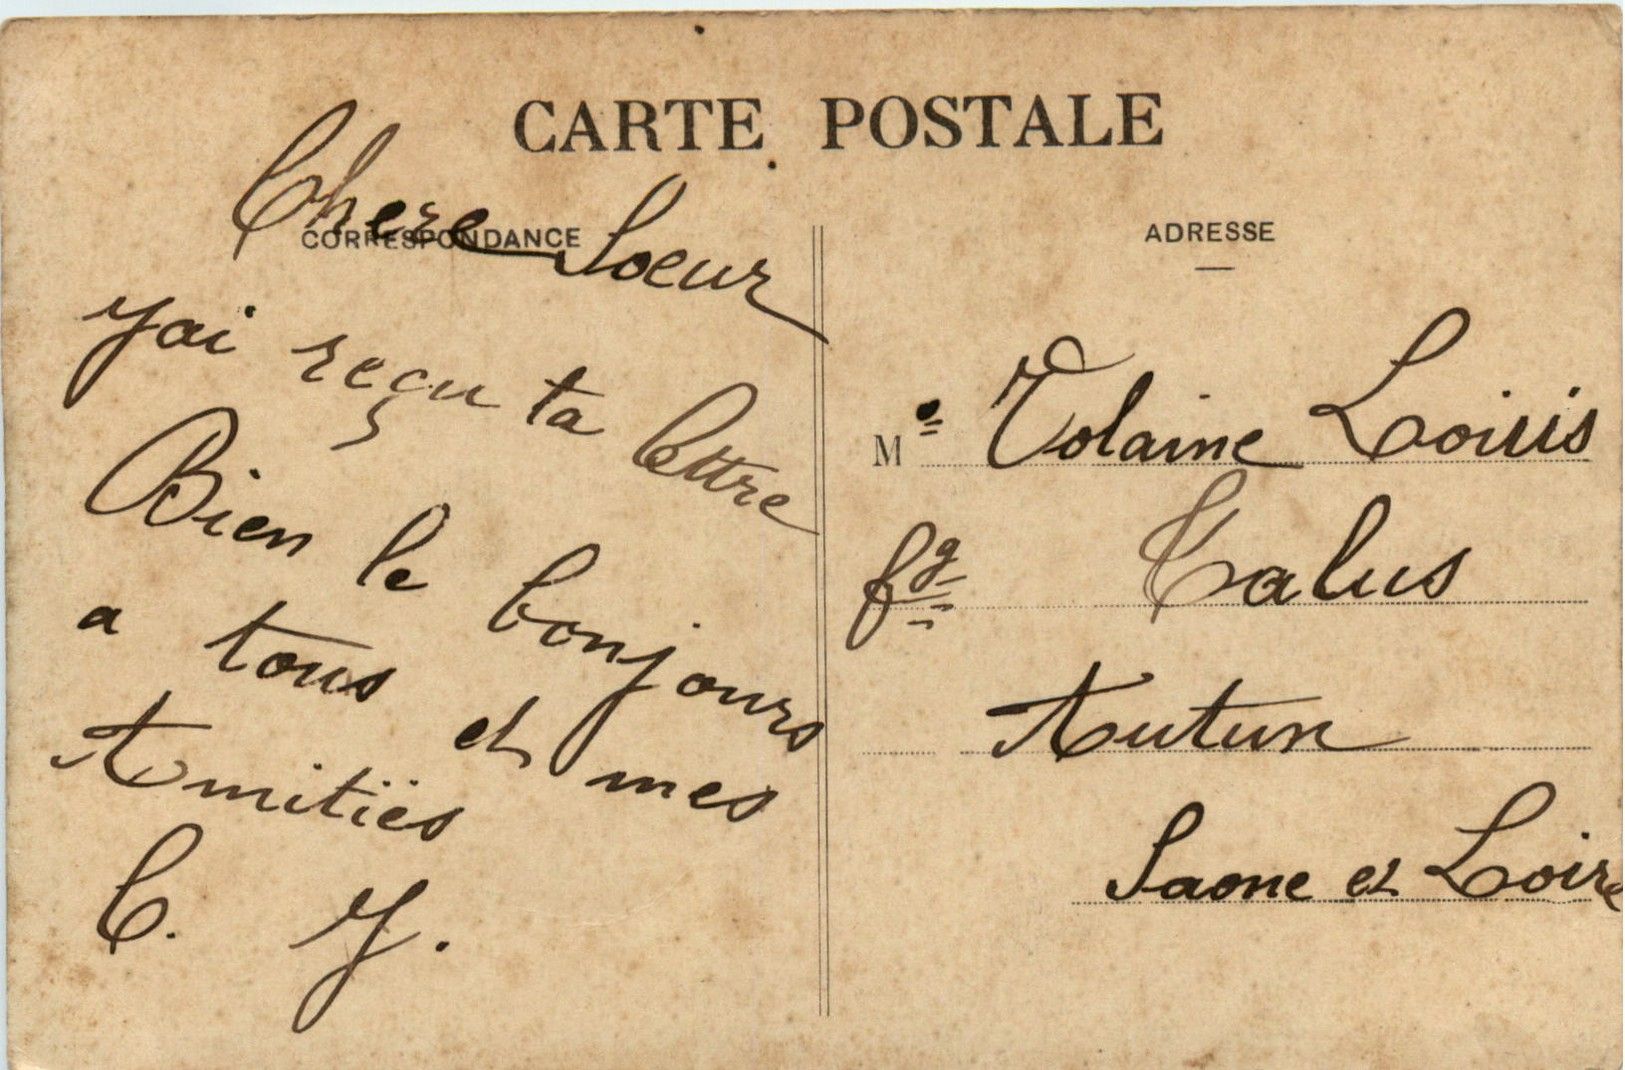 CARTE POSTALE
CORRESPONDANCE
Chere Soeur
j'ai reçu ta lettre
Bien le bonjours
a tous et mes
Amitiës
C. J.
ADRESSE
Me Volaine Louis
fg Talus
Autun
Saone et Loire